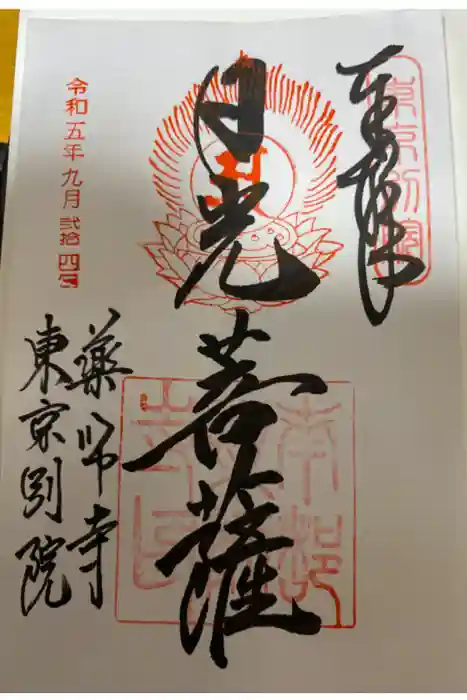 奉拝
東京別院
月光菩薩
令和五年九月弐拾四日
薬師寺
東京別院